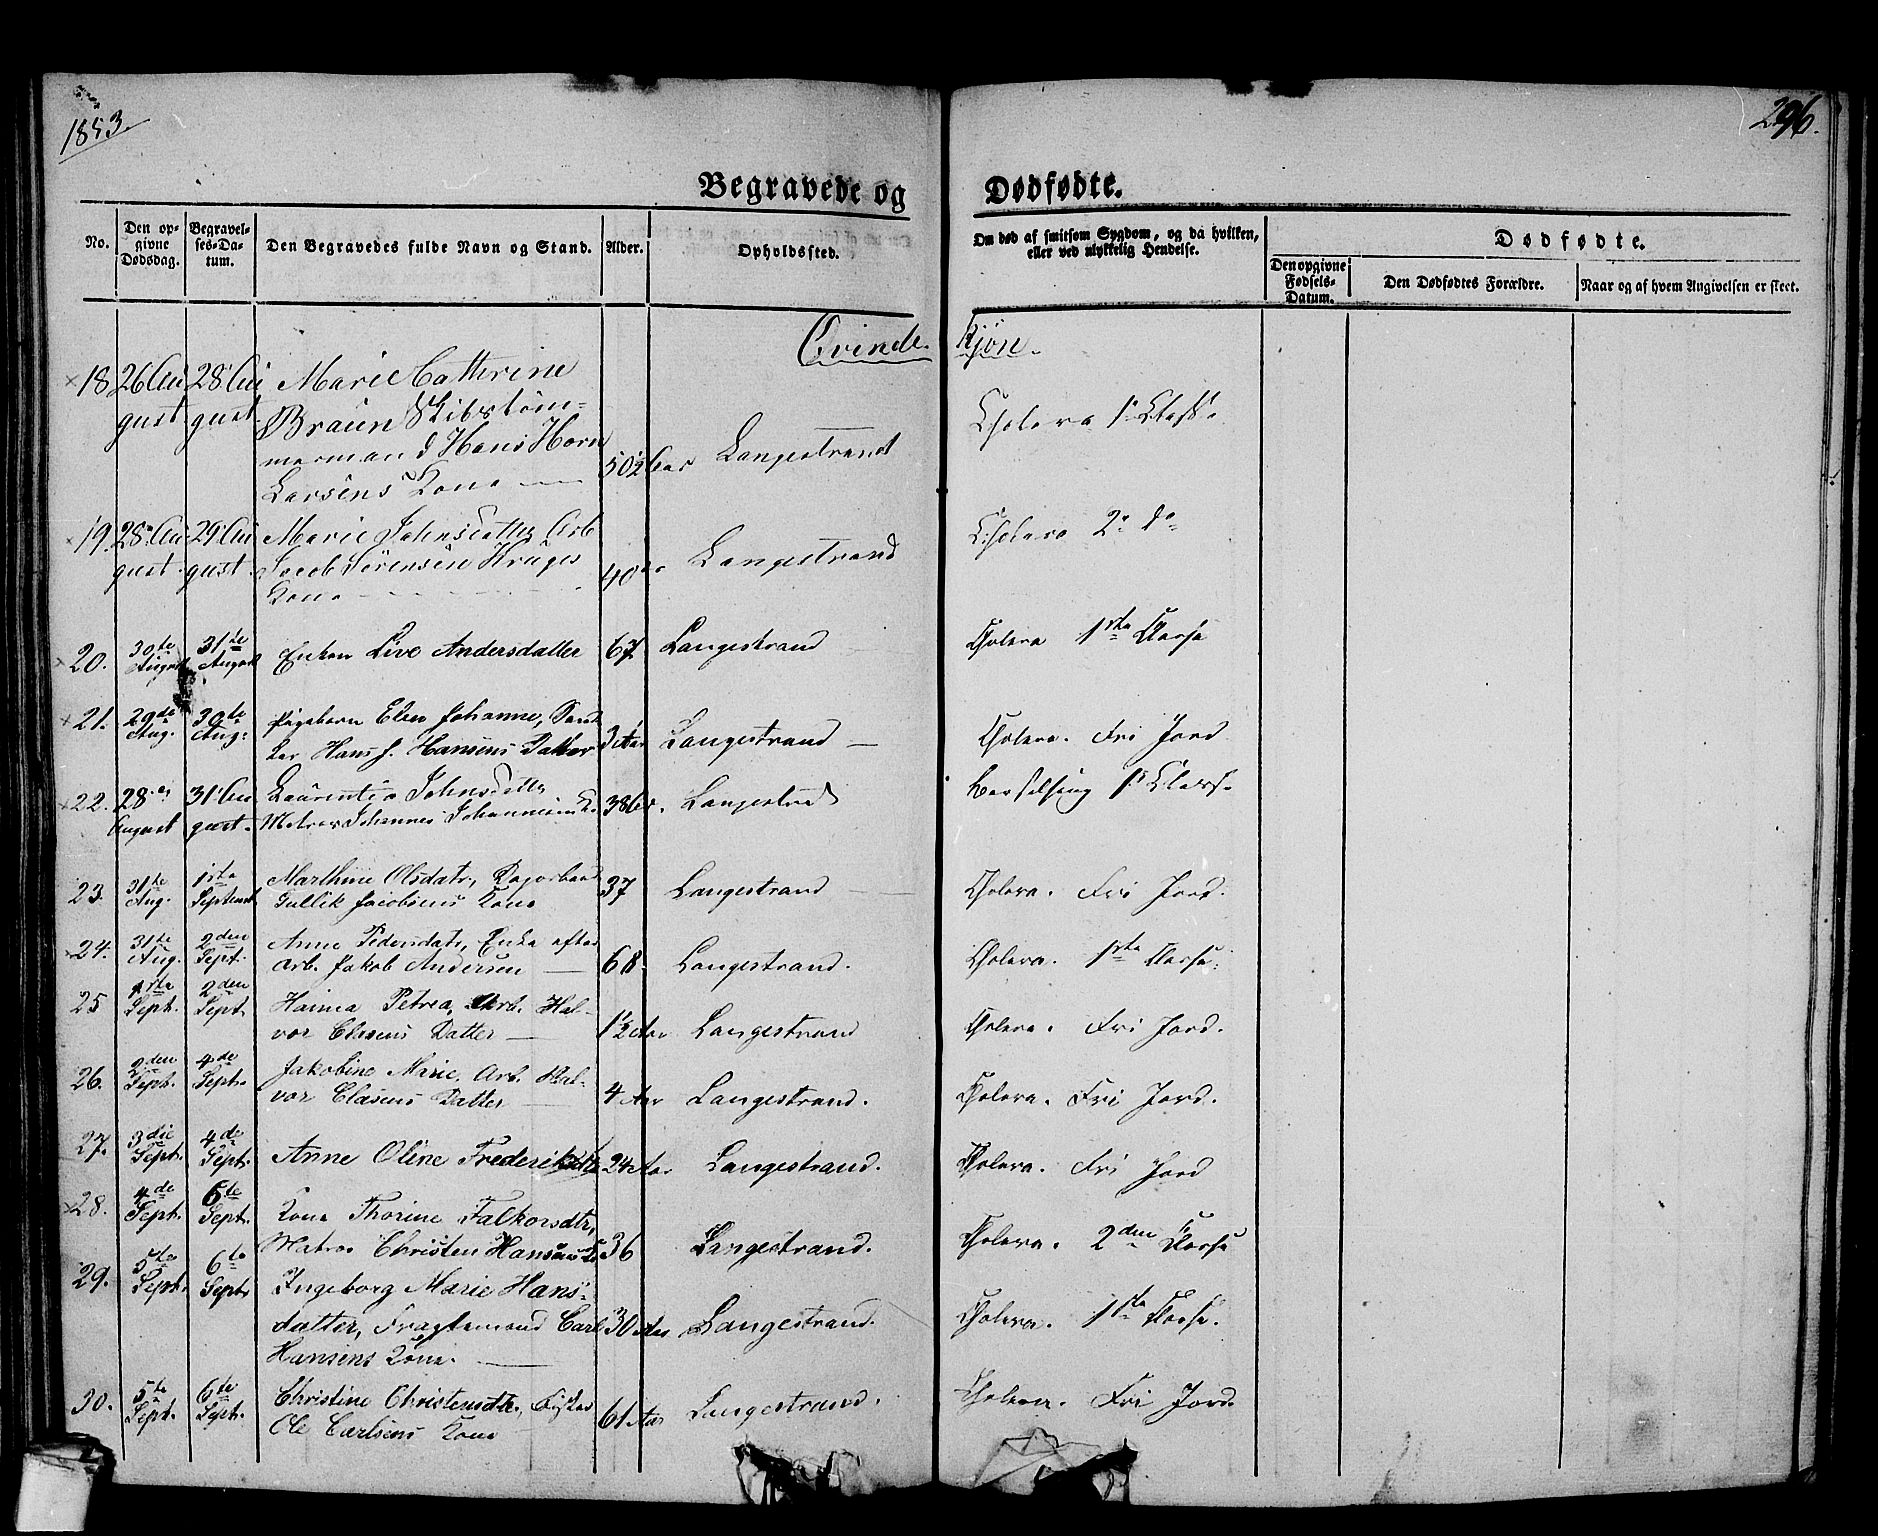 1853.
296.
Begravede og Dødfødte.
No.
Den opgivne Dødsdag.
Begravelses-Datum.
Den Begravedes fulde Navn og Stand.
Alder.
Opholdssted.
Om død af smitsom Sygdom, og da hvilken, eller ved ulykkelig Hendelse.
Dødfødte.
Den opgivne Fødsels-Datum.
Den Dødfødtes Forældre.
Naar og af hvem Angivelsen er skeet.
Qvinde-kjøn.
18 26 Au 28 Au Marie Cathrine
gust. gust. Braun Skibstøm=
mermand Hans Horn 50½ Aar Langestrand Cholera 1e Classe
Larsens Kone
19. 28 Au 29 Au Marie Johnsdatter Arb
gust. gust. Jacob Sørensen Kruges 40 Langestrand Cholera 2e do
Kone
20. 30te August 31te August Enken Live Andersdatter 67 Langestrand Cholera 1ste Classe
21. 29de Aug. 30te Aug: Pigebarn Elen Johanne,
Hans J. Hansens Datter 3 Aar Langestrand Cholera. Fri Jord
22. 28 August 31 August. Laurentia Johnsdatter
Matros Johannes Johannesens K. 38 Aar. Langestrand Barselseng 1e Classe
23. 31te Aug. 1ste Septemb Marthine Olsdatr,
Gullik Jacobsens Kone 37 Langestrand Cholera. Fri Jord.
24. 31te Aug. 2den Sept. Anne Pedersdatr, Enke efter
Arb. Jakob Andersen 68. Langestrand. Cholera. 1ste Classe.
25 1ste Sept. 2den Sept. Hanna Petrea, Arb. Hal-
vor Clasens Datter 1½ Aar Langestrand Cholera. Fri Jord.
26. 2den Sept. 4de Sept. Jakobine Marie. Arb. Hal-
vor Clasens Datter 4 Aar Langestrand. Cholera. Fri Jord.
27. 3die Sept. 4de Sept. Anne Oline Frederiksdtr 24 Aar Langestrand. Cholera. Fri Jord
28. 4de Sept. 6te Sept. Kone Thorine Falkorsdtr,
Matros Christen Hansens K. 36 Langestrand. Cholera. 2den Classe
29. 5te Sept. 6te Sept. Ingeborg Marie Hans-
datter, Fragtemand Carl 30 Aar Langestrand. Cholera. 1ste Classe.
Hansens Kone.
30. 5te Sept. 6te Sept. Christine Christensdtr, Fisker
Ole Carlsens Kone 61 Aar Langestrand. Cholera. Fri Jord.